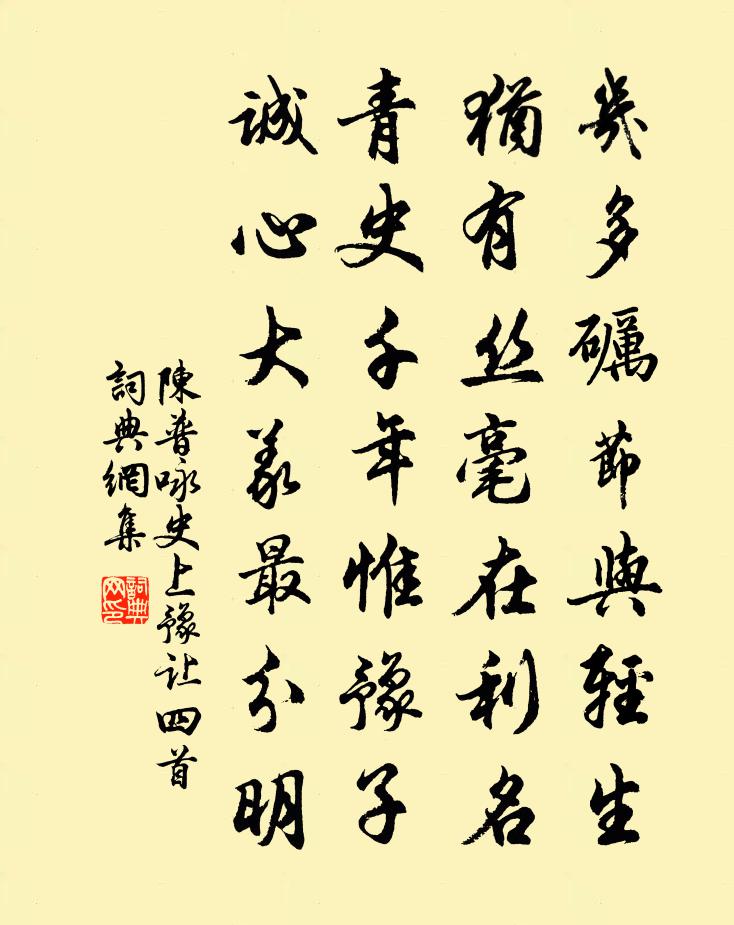 幾多礪節與輕生
猶有丝毫在利名
青史千年惟豫子
誠心大義最分明
陳普咏史上豫让四首
詞典網集
詞典網印